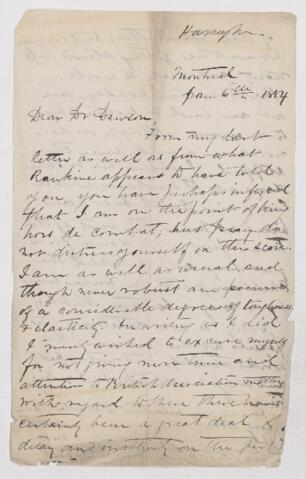 Montreal
Jan 6th 1884
Dear Dr Dawson,
From my last
letter as well as from what
Rankine appears to have told
you, you have perhaps inferred
that I am on the point of being
hors de combat, but pray do
not distress yourself on this score.
I am as well as usual, and
though never robust am possessed
of a considerable degree of toughness
& elasticity. In writing as I did
I merely wished to excuse myself
for not giving more time and
attention to British Association matters
With regard to these there has
certainly been a great deal of
delay and inactivity on the part